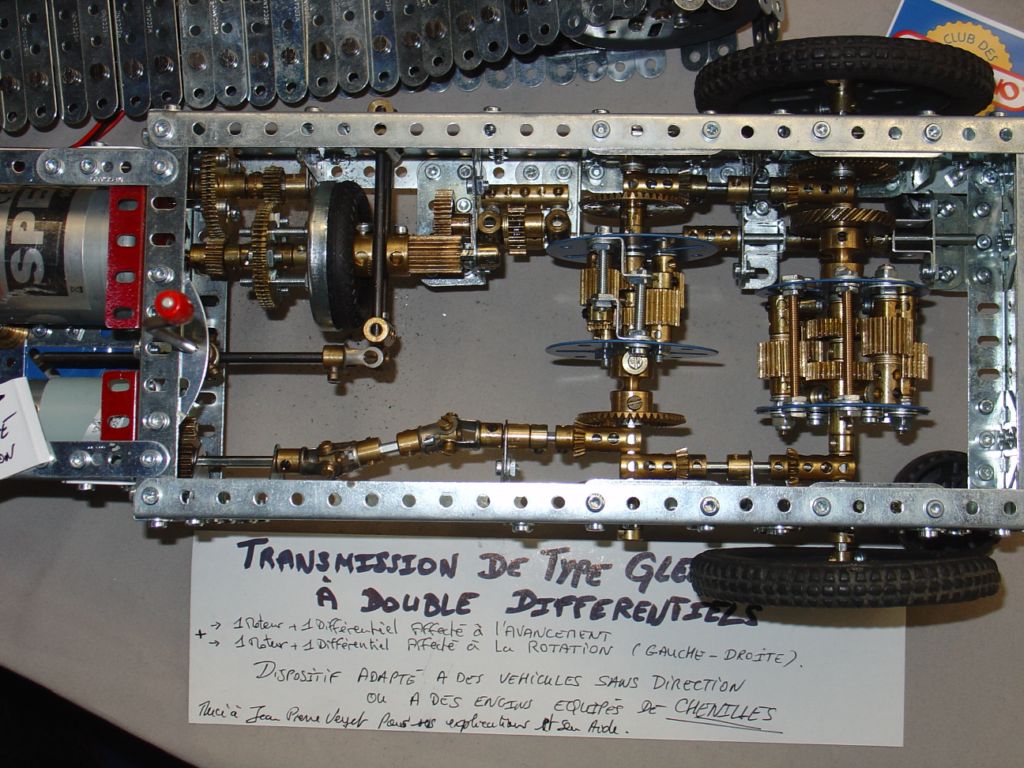 CLUB DES
NO
SPE
E
ON
TRANSMISSION DE TYPE GLE
À DOUBLE DIFFERENTIELS
+ → 1 Moteur + 1 Différentiel Affecté à l'AVANCEMENT
→ 1 Moteur + 1 Différentiel Affecté à La ROTATION (GAUCHE-DROITE).
DISPOSITIF ADAPTÉ A DES VEHICULES SANS DIRECTION
OU A DES ENGINS EQUIPÉS DE CHENILLES
Merci à Jean Pierre Veyet pour ses explications et son Aide.